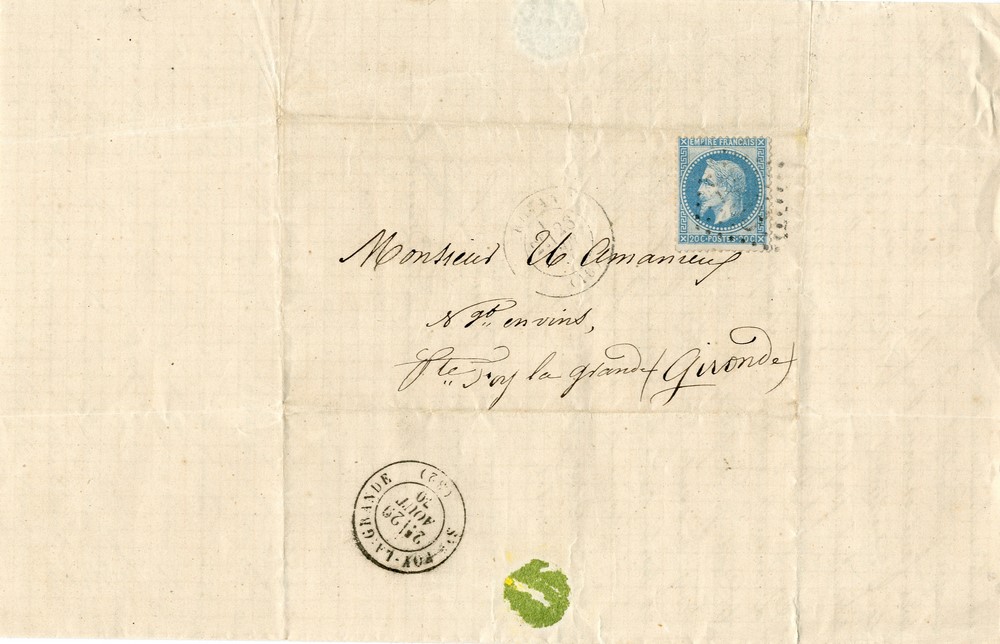 EMPIRE FRANCAIS
20C POSTES 20C
Monsieur
Ngt. en vins,
Ste Foy la grande (Gironde)
STE FOY-LA-GRANDE (32)
2E 29
AOUT
70